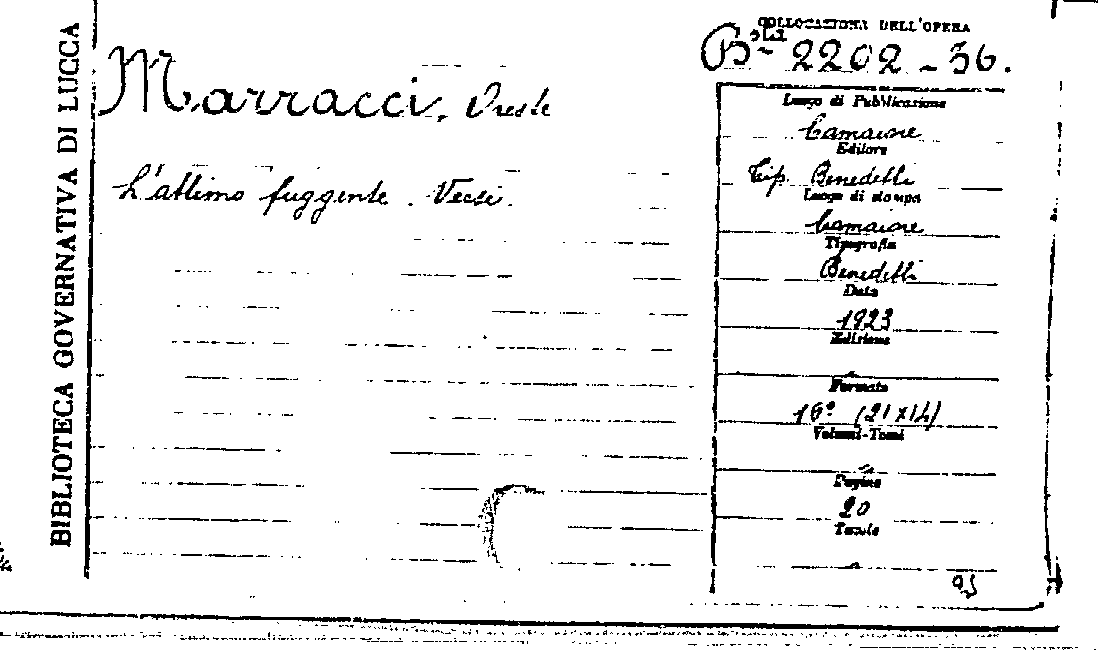 BIBLIOTECA GOVERNATIVA DI LUCCA
COLLOCAZIONE DELL'OPERA
2202-36.
Marracci, Oreste
L'attimo fuggente. Versi.
Luogo di Pubblicazione
Camaiore
Editore
Tip. Benedetti
Luogo di stampa
Camaiore
Tipografia
Benedetti
Data
1923
Edizione
Formato
16º (21x14)
Volumi-Tomi
Pagine
20
Tavole